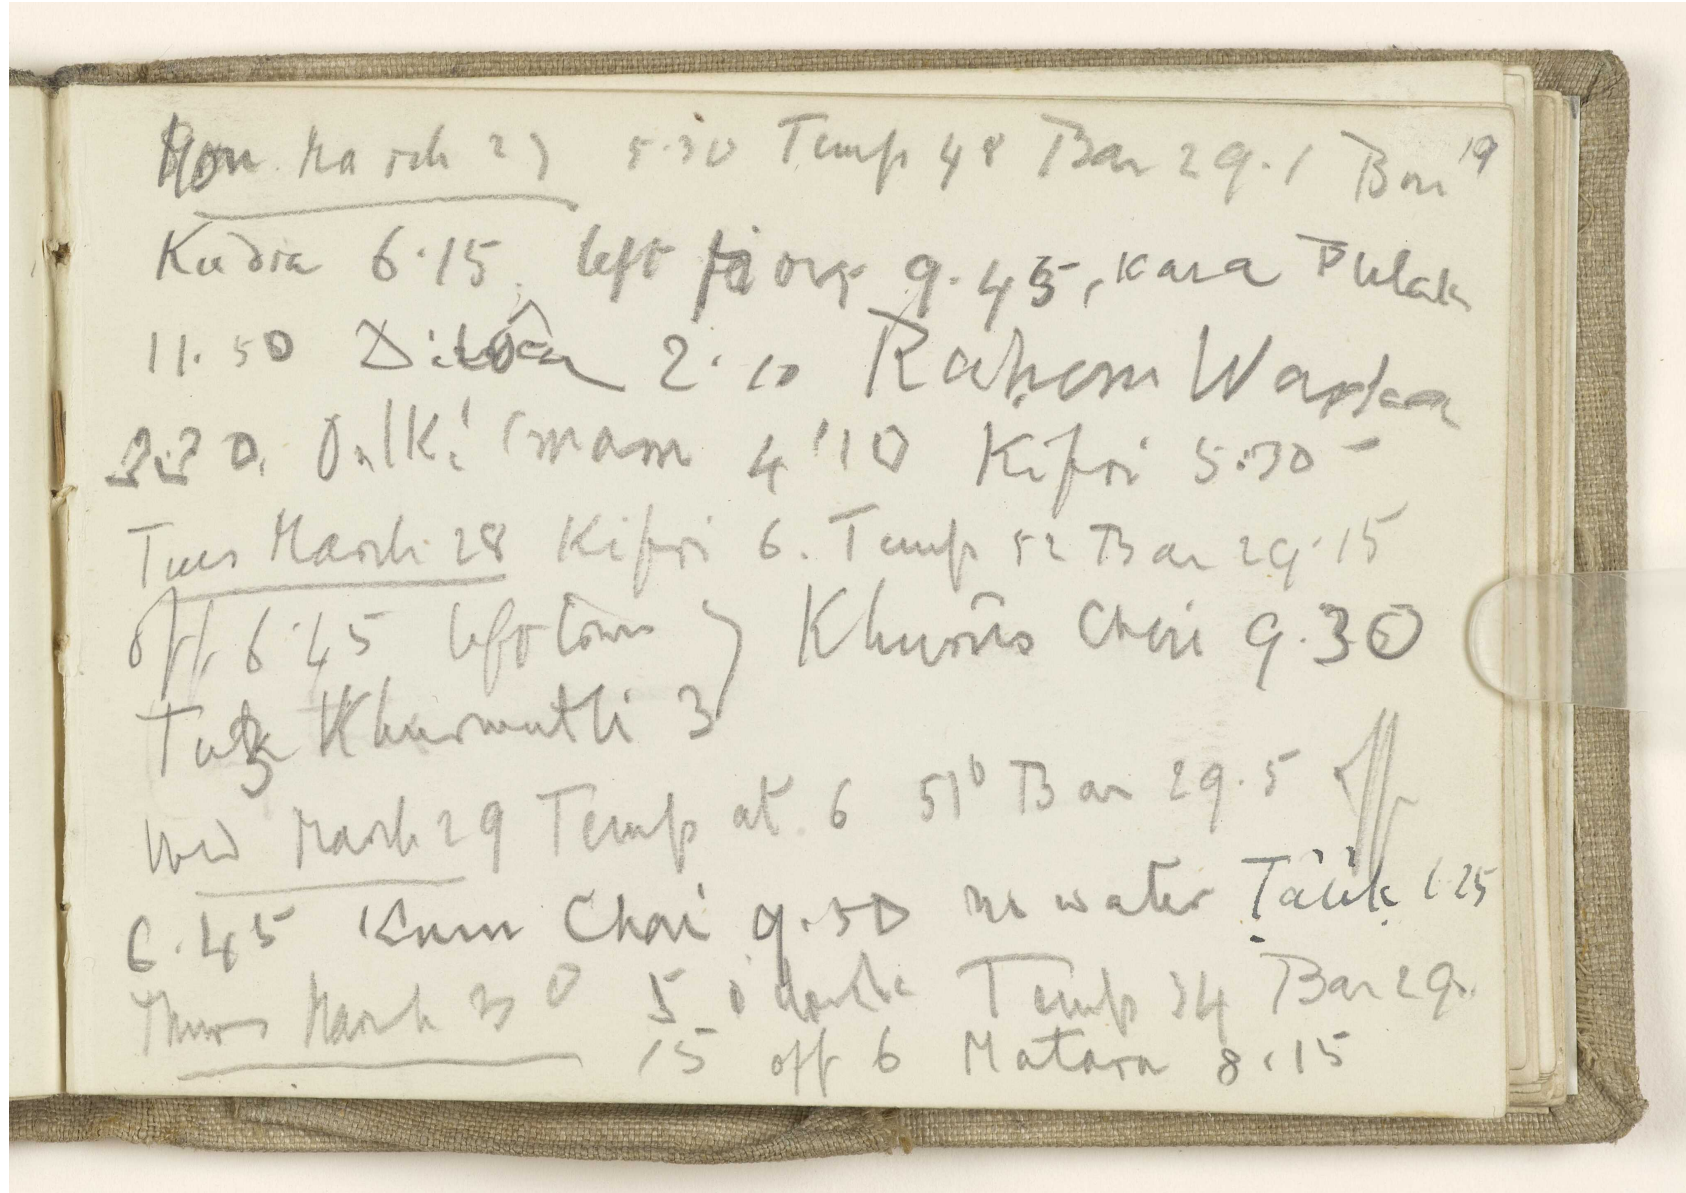 Mon March 27 5.30 Temp 48 Bar 29.1 19
Kudra 6.15 left 9.45, Kara Pulak
11.50 2.10 Rahom
Imam 4.10 Kifri 5.30
Tues March 28 Kifri 6. Temp 52 Bar 29.15
off 6.45 left town } Chai 9.30
Tuz Khurmatli 3
Wed March 29 Temp at 6 51° Bar 29.5 off
6.45 Kum Chai 9.50 no water 1.25
Thurs March 30 5 Temp 34 Bar 29.
15 off 6 Matara 8.15